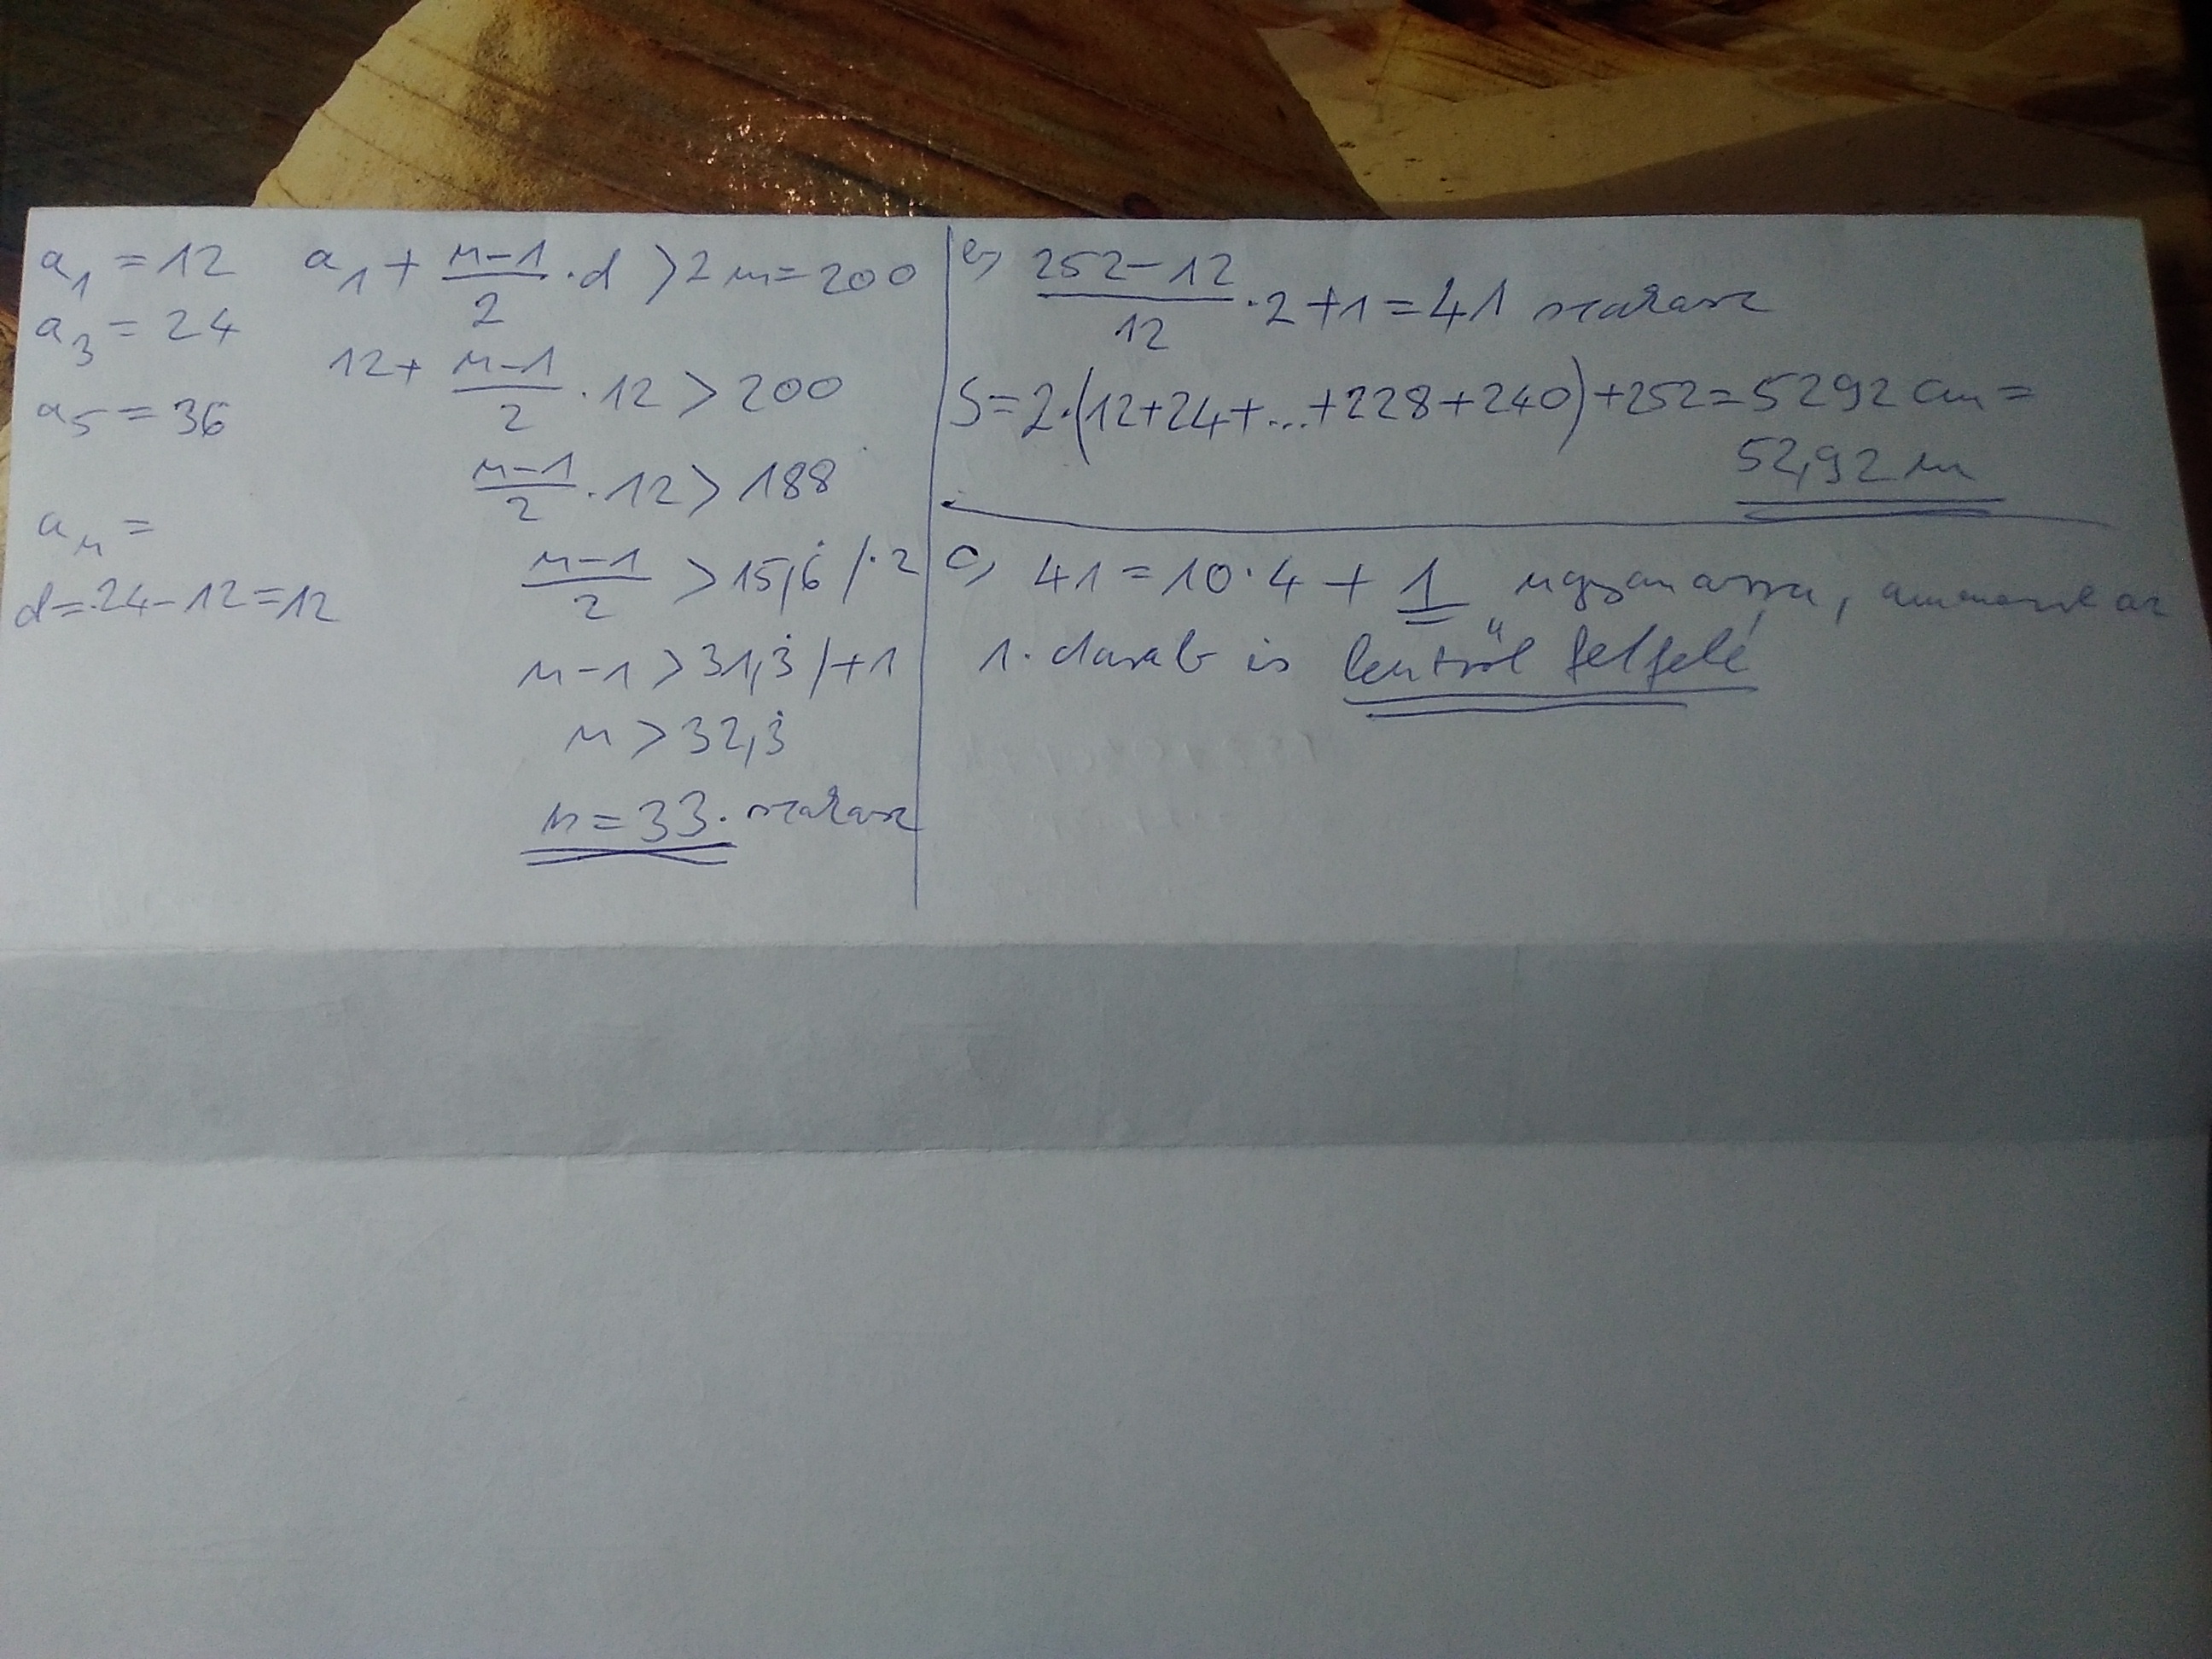 a₁ = 12
a₃ = 24
a₅ = 36
aₙ =
d = 24 - 12 = 12
a₁ + (n-1)/2 · d > 2 m = 200
12 + (n-1)/2 · 12 > 200
(n-1)/2 · 12 > 188
(n-1)/2 > 15,6̇ / ·2
n-1 > 31,3̇ / +1
n > 32,3̇
n = 33. szakasz
b, (252-12)/12 · 2 + 1 = 41 szakasz
S = 2·(12+24+...+228+240) + 252 = 5292 cm =
52,92 m
c, 41 = 10·4 + 1 ugyanarra, amerre az
1. darab is lentről felfelé